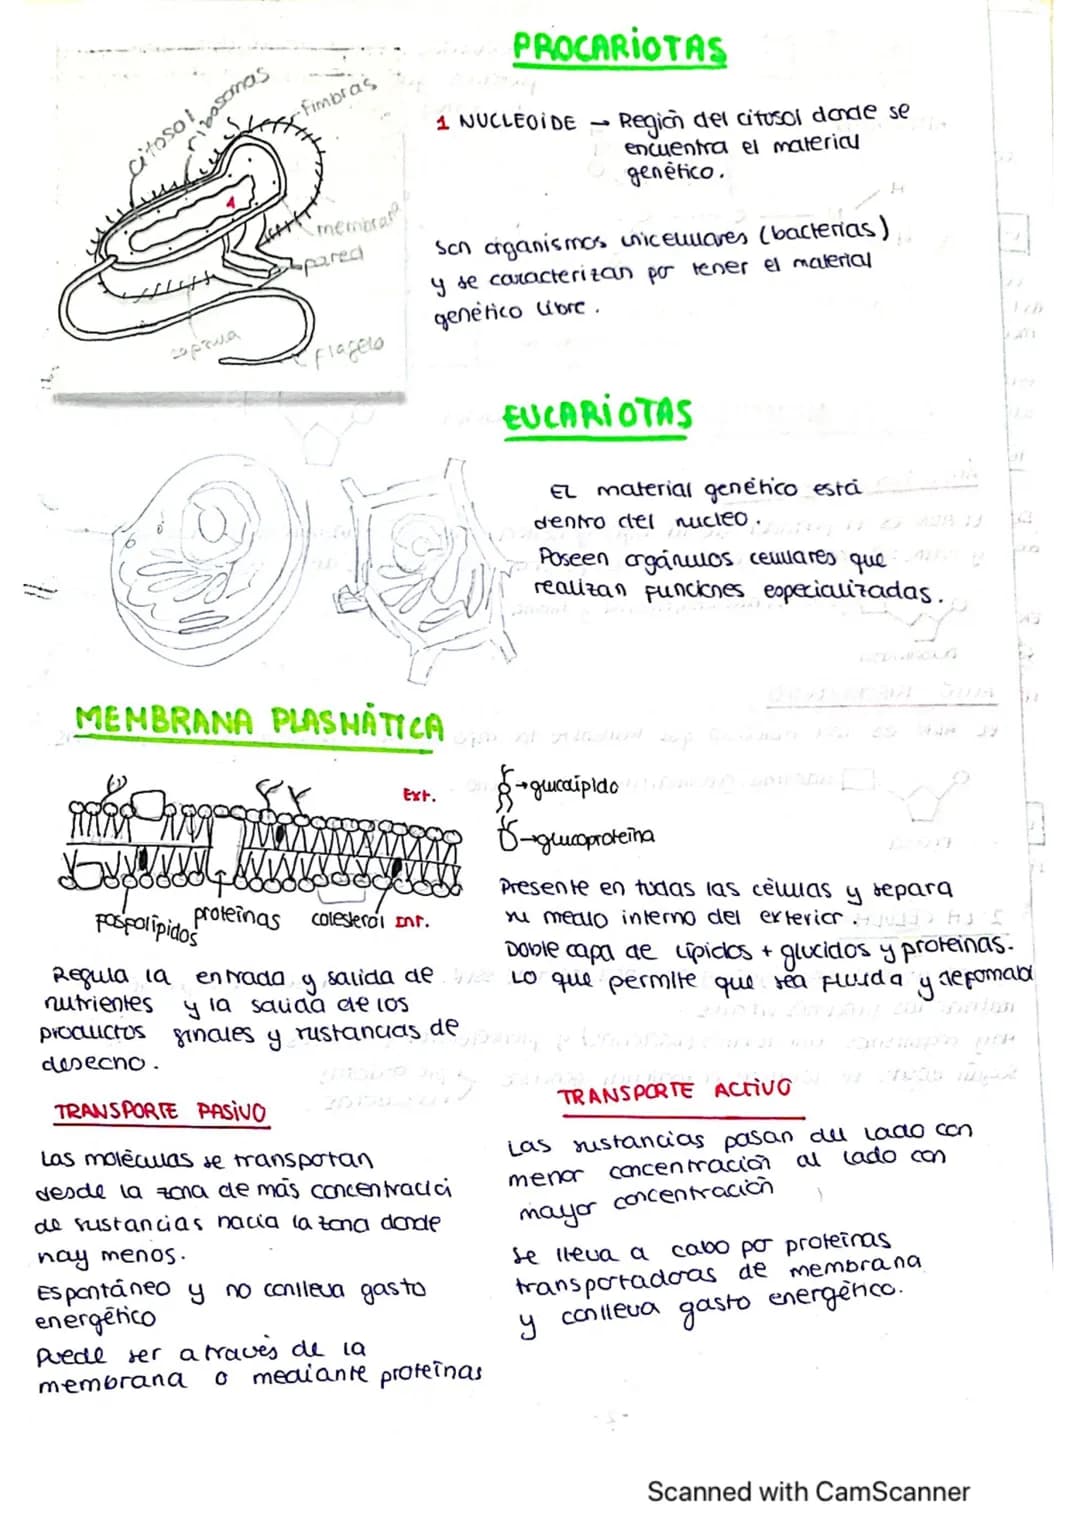 PROCARIOTAS
citosol
ribosomas
fimbras
membrana
pared
capsula
flagelo
1
1 NUCLEOIDE → Región del citosol donde se
encuentra el material
genético.
Son organismos unicelulares (bacterias)
y se caracterizan por tener el material
genético libre.
EUCARIOTAS
El material genético está
dentro del nucleo.
Poseen orgánulos celulares que
realizan funciones especializadas.
MEMBRANA PLASMÁTICA
Ext.
fosfolípidos
proteínas
colesterol
Int.
→glucolípido
→glucoproteína
Presente en todas las células y separa
su medio interno del exterior.
Doble capa de lípidos + glúcidos y proteínas.
Lo que permite que sea fluida y deformabl
Regula la entrada y salida de
nutrientes y la salida de los
productos finales y sustancias de
desecho.
TRANSPORTE PASIVO
Las moléculas se transpotan
desde la zona de más concentració
de sustancias hacia la zona donde
hay menos.
Espontáneo y no conlleva gasto
energético
Puede ser a través de la
membrana o mediante proteínas
TRANSPORTE ACTIVO
Las sustancias pasan del lado con
menor concentración al lado con
mayor concentración
Se lleva a cabo por proteínas
transportadoras de membrana
y conlleva gasto energético.
Scanned with CamScanner